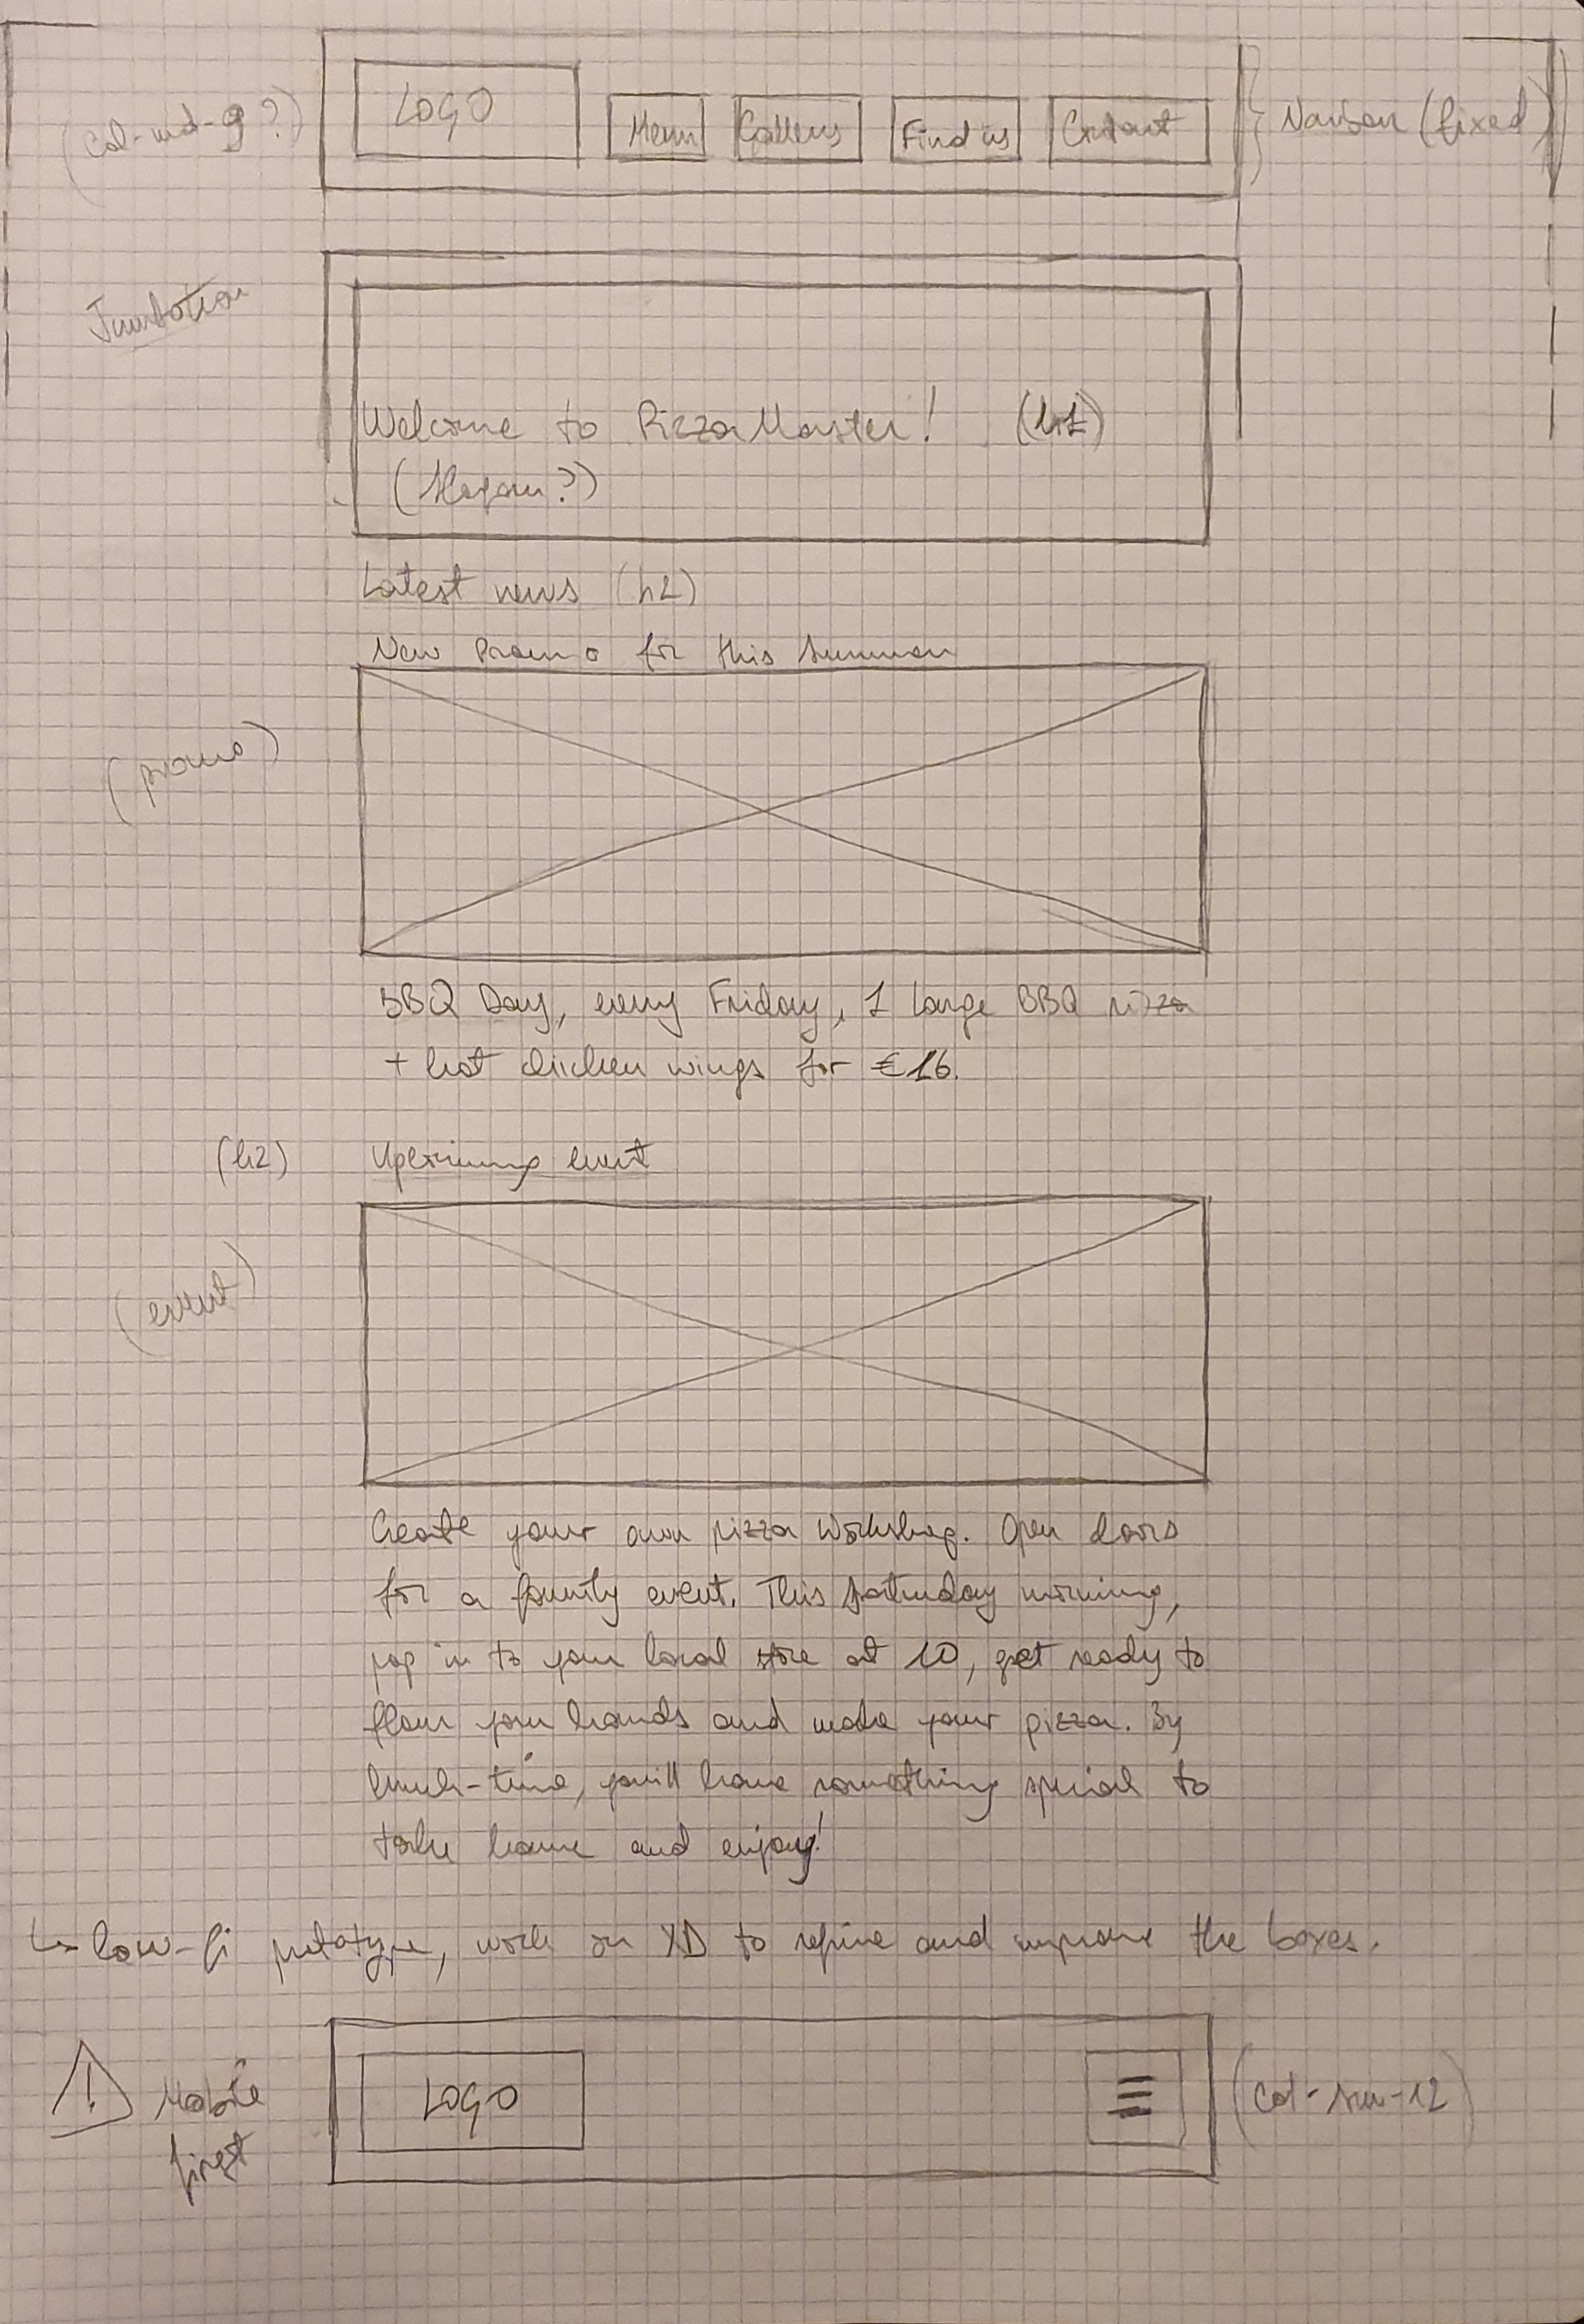 (col-md-9?)
LOGO
Menu
Gallery
Find us
Contact
Navbar (fixed)
Jumbotron
Welcome to PizzaMaster! (h1)
(Slogan?)
Latest news (h2)
New Promo for this summer
(promo)
BBQ Day, every Friday, 1 large BBQ pizza
+ hot chicken wings for €16.
(h2) Upcoming event
(event)
Create your own pizza workshop. Open doors
for a family event. This saturday morning,
pop in to your local store at 10, get ready to
flour your hands and make your pizza. By
lunch-time, you'll have something special to
take home and enjoy!
low-fi prototype, work on XD to refine and improve the boxes.
! Mobile
first
LOGO
(col-sm-12)